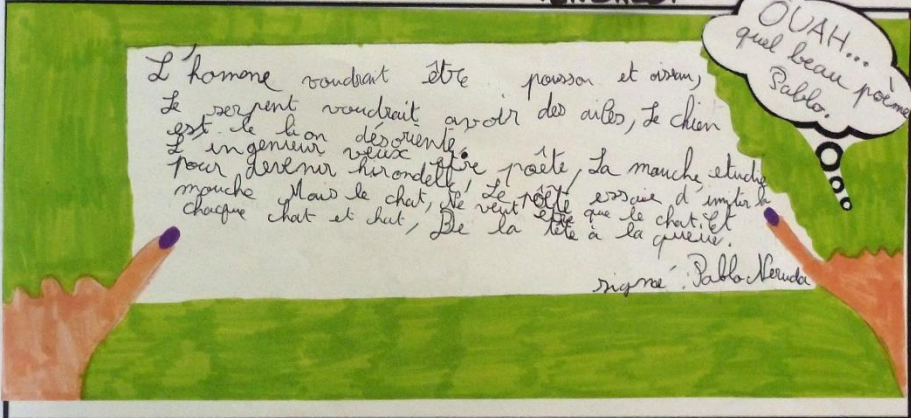 L'homme voudrait être poisson et oiseau,
Le serpent voudrait avoir des ailes, Le chien
est le lion désorienté.
L'ingenieur veux être poète, La mouche, etudie
pour devenir hirondelle, Le poète essaie d'imiter la
mouche Mais le chat, Ne veut être que le chat. Et
chaque chat et hat, De la tête à la queue.
signé : Pablo Neruda
OUAH...
quel beau poème
Pablo.